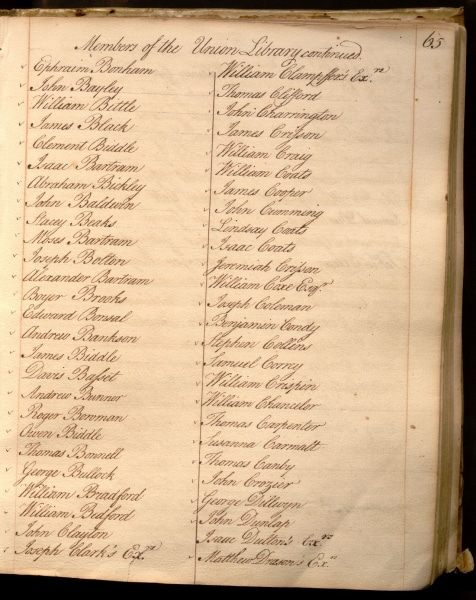 65
Members of the Union Library continued.
Ephraim Bonham
John Bayley
William Bettle
James Black
Clement Biddle
Isaac Bartram
Abraham Bickley
John Baldwin
Stacey Beaks
Moses Bartram
Joseph Bolton
Alexander Bartram
Boyer Brooks
Edward Bonsal
Andrew Bankson
James Biddle
Davis Basset
Andrew Bunner
Roger Bowman
Owen Biddle
Thomas Bonnell
George Bullock
William Bradford
William Bedford
John Clayton
Joseph Clark's Exrs
William Clampffer's Exrs
Thomas Clifford
John Charrington
James Cresson
William Craig
William Coats
James Cooper
John Cumming
Lindsay Coats
Isaac Coats
Jeremiah Cresson
William Coxe Esqr
Joseph Coleman
Benjamin Condy
Stephen Collins
Samuel Corry
William Crispin
William Chancelor
Thomas Carpenter
Susanna Carmalt
Thomas Canby
John Crozier
George Dillwyn
John Dunlap
Isaac Dulton's Exrs
Matthew Drason's Exrs